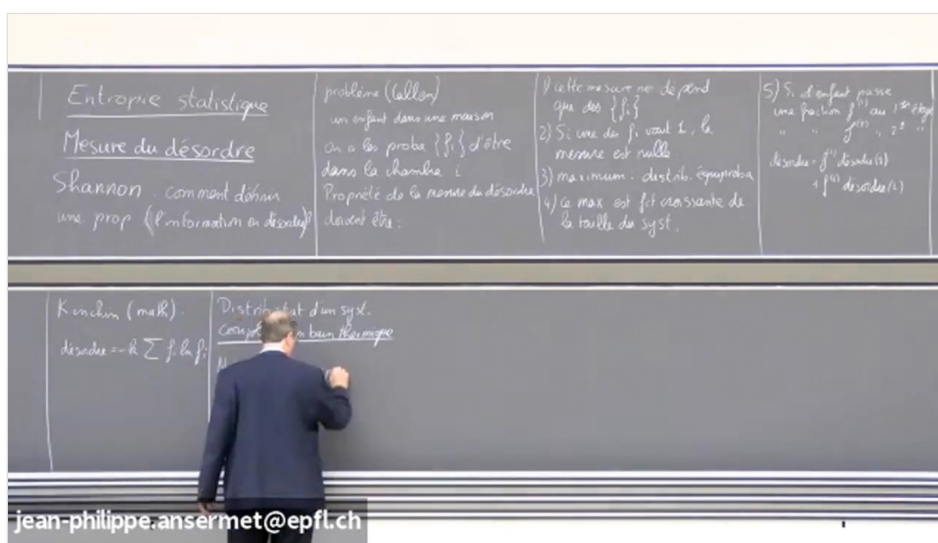 Entropie statistique
Mesure du désordre
Shannon comment définir
une prop (l'information en désordre)
problème (Callen)
un enfant dans une maison
on a les proba {fi} d'être
dans la chambre i
Propriété de la mesure du désordre
doivent être:
1) cette mesure ne dépend
que des {fi}
2) Si une des fi vaut 1, la
mesure est nulle
3) maximum. distrib. équiproba
4) Ce max est fct croissante de
la taille du syst.
5) Si l'enfant passe
une fraction f⁽¹⁾ au 1er étage
" " f⁽²⁾ " 2e "
désordre = f⁽¹⁾ désordre(1)
+ f⁽²⁾ désordre(2)
Kinchin (math).
désordre = -k ∑ fi ln fi
Distrib. état d'un syst.
bain thermique
N
jean-philippe.ansermet@epfl.ch